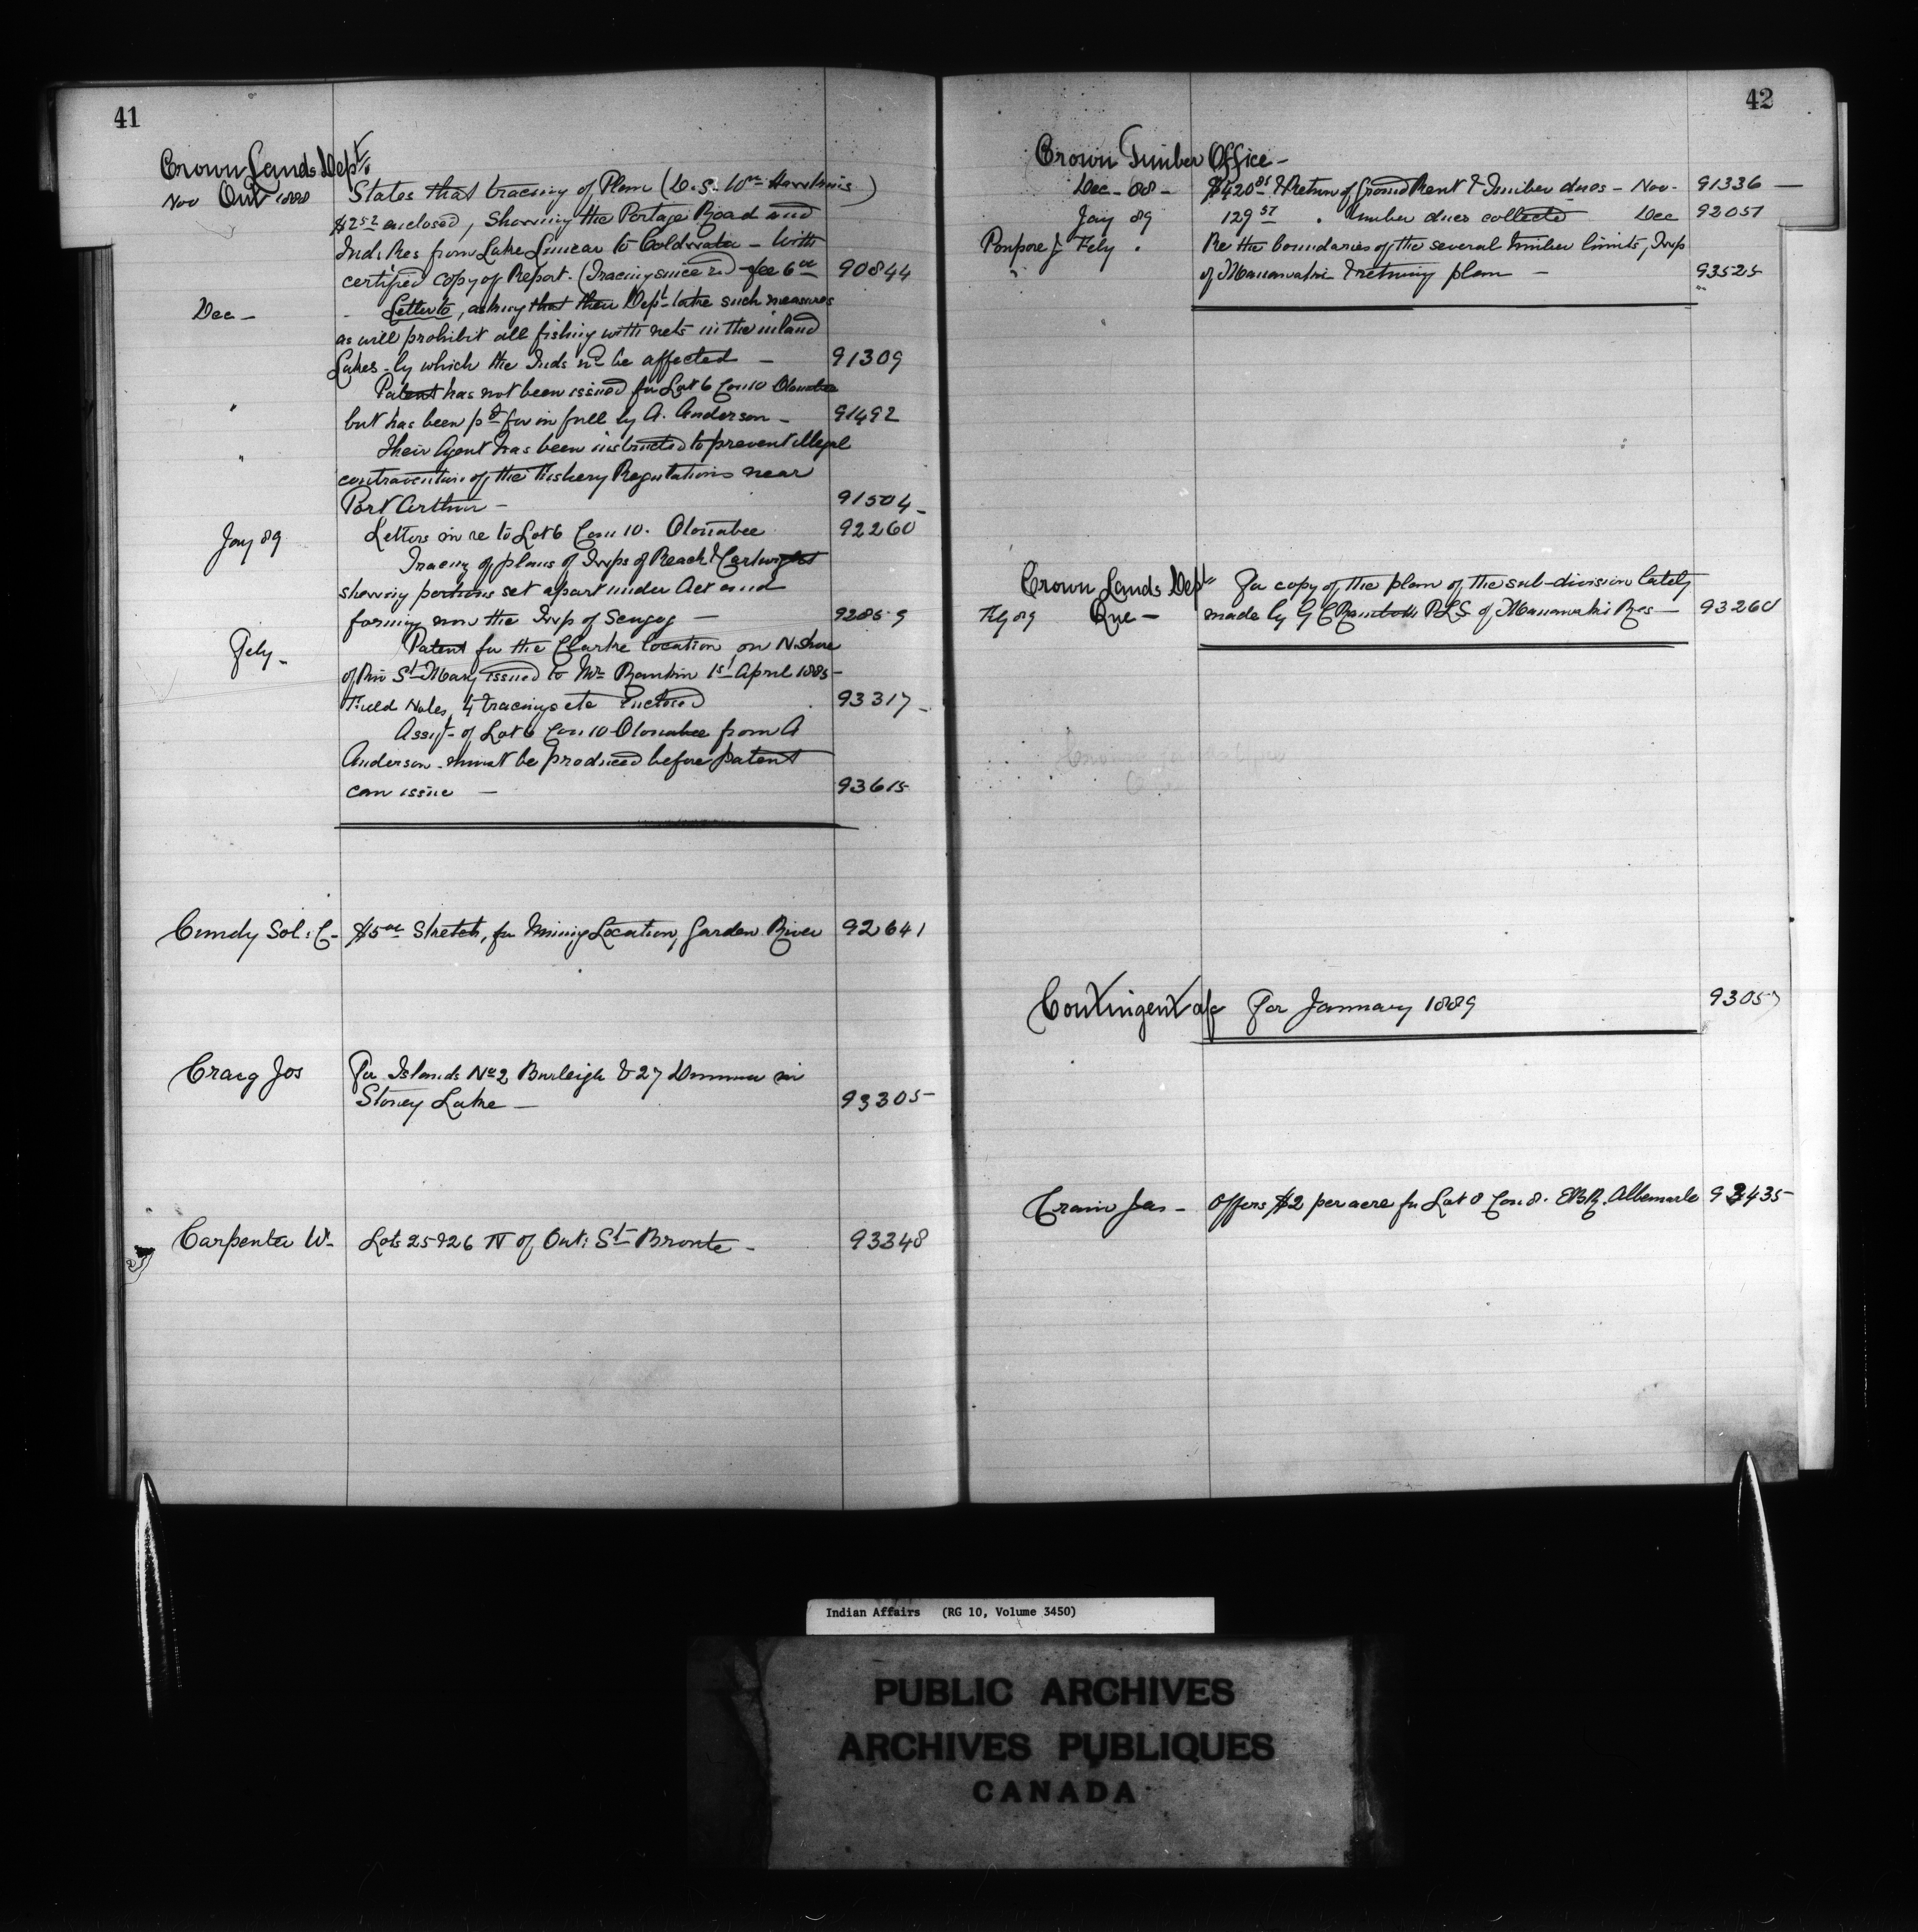 41
Crown Lands Dept.
Nov Ont 1888 States that tracing of Plan (D.S. Wm Hawkins)
$2.52 enclosed, Showing the Portage Road and
Ind: Res from Lake Simcoe to Coldwater - with
certified copy of Report. (Tracing since rd) - fee 6 00 90844
Dec - Letter to, asking that their Dept take such measures
as will prohibit all fishing with nets in the inland
Lakes - by which the Inds wd be affected - 91309
Patent has not been issued for Lot 6 Con 10 Otonabee
" but has been pd for in full by A. Anderson - 91492
" Their Agent has been instructed to prevent illegal
contravention of the Fishery Regulations near
Port Arthur - 91504 -
Jany 89 Letters in re to Lot 6 Con 10. Otonabee 92260
Tracing of plans of Twps of Reach & Cartwright
showing portions set apart under Act and
forming now the Twp of Scugog - 92859
Feby - Patent for the Clarke location on N. Shore
of Riv St Mary issued to Mr Rankin 1st April 1885 -
Field Notes, 4 tracings etc Enclosed 93317 -
Assigt of Lot 6 Con 10 Otonabee from A
Anderson - must be produced before patent
can issue - 93615
Cundy Sol: C - $5 00 Sketch, for Mining Location, Garden River 92641
Craig Jos For Islands No 2 Burleigh & 27 Dummer in
Stoney Lake - 93305 -
Carpenter W. Lots 25 & 26 N of Ont: St Bronte - 93348
42
Crown Timber Office -
Dec - 88 - $420 85 & Return of Ground Rent & Timber dues - Nov. 91336 -
Jany 89 129 57 " timber dues collected Dec 92057
Feby " Re the boundaries of the several timber limits, Twp
" of Maniwaki & retning plan - 93525
Crown Lands Dept For copy of the plan of the sub-division lately
Feby 89 Que - made by G C Rainboth PLS of Maniwaki Res - 93260
Contingent a/c For January 1889 93057
Crain Jas - Offers $2 per acre for Lot 8 Con 8. EBR. Albemarle 93435 -
Indian Affairs (RG 10, Volume 3450)
PUBLIC ARCHIVES
ARCHIVES PUBLIQUES
CANADA